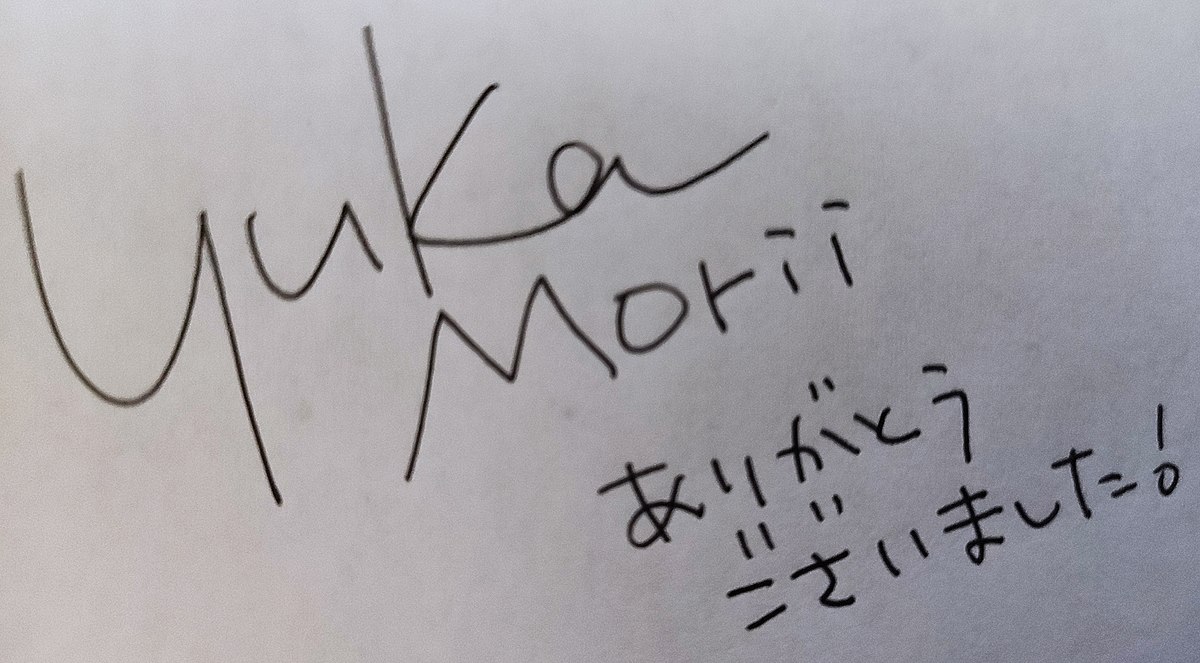 Yuka
Morii
ありがとう
ございました!